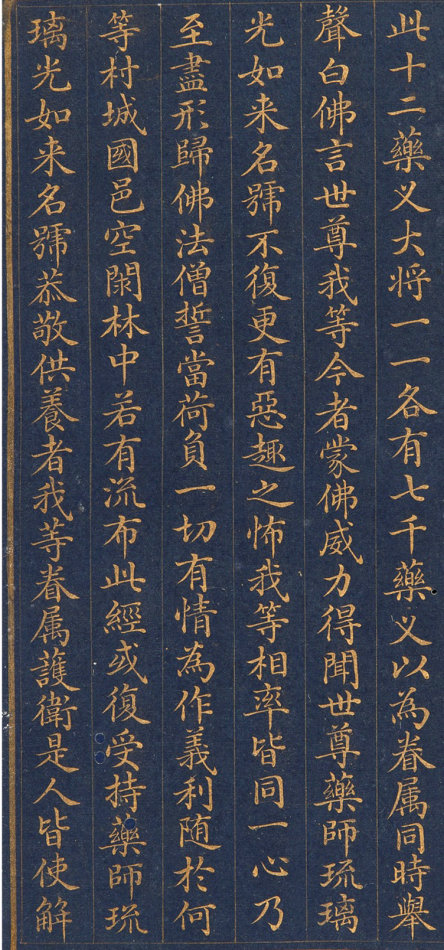 此十二藥义大将一一各有七千藥义以為眷属同時舉
聲白佛言世尊我等今者蒙佛威力得聞世尊藥師琉璃
光如来名號不復更有惡趣之怖我等相率皆同一心乃
至盡形歸佛法僧誓當荷負一切有情為作義利随於何
等村城國邑空閑林中若有流布此經或復受持藥師琉
璃光如来名號恭敬供養者我等眷属護衛是人皆使解